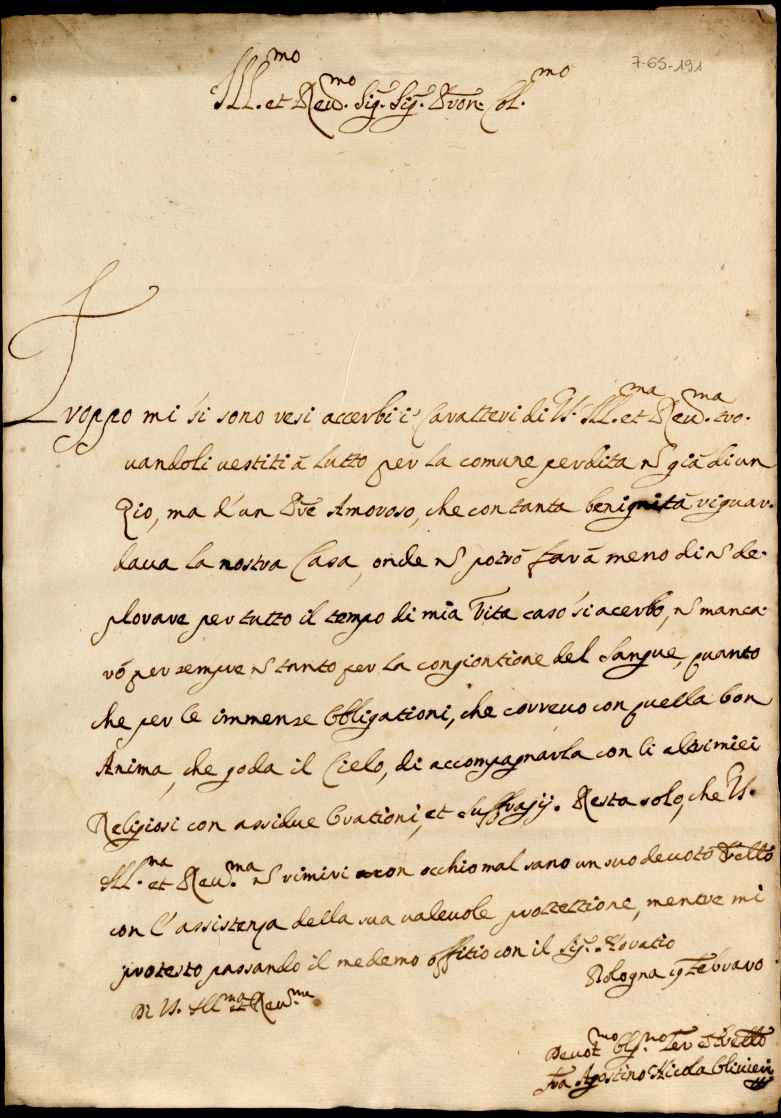 7-65-191
Ill.mo et Reu.mo Sig. Sig. Pron. Col.mo
Troppo mi si sono resi accerbi i Caratteri di V.S. Ill.ma et Reu.ma tro-
uandoli uestiti à lutto per la comune perdita nõ già di un
Zio, ma d'un Pre Amoroso, che con tanta benignità riguar-
daua la nostra Casa, onde nõ potrò far à meno di nõ de-
plorare per tutto il tempo di mia Vita caso si acerbo, nõ manca-
rò per sempre nõ tanto per la congiontione del sangue, quanto
che per le immense Obligationi, che correuo con quella bon
Anima, che goda il Cielo, di accompagnarla con li altri miei
Religiosi con assidue Orationi, et suffragij. Resta solo, che V.S.
Ill.ma et Reu.ma nõ rimiri con occhio mal sano un suo deuoto
con l'assistenza della sua ualeuole protettione, mentre mi
protesto passando il medemo offitio con il Sig. Horatio
Bologna 9 Febraro
Di V.S. Ill.ma et Reu.ma
Deuot.mo Obl.mo Ser
Fra Agostino Nicola Oliuieri